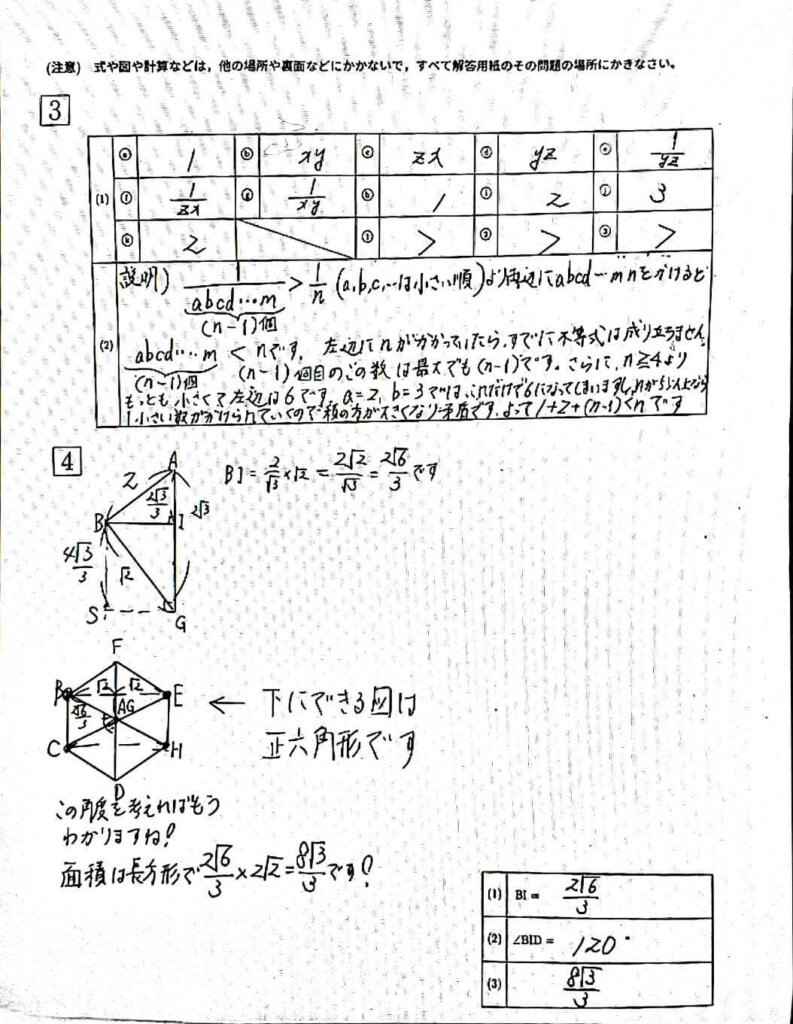 (注意) 式や図や計算などは，他の場所や裏面などにかかないで，すべて解答用紙のその問題の場所にかきなさい。
3
(1)
ⓐ 1 ⓑ xy ⓒ zx ⓓ yz ⓔ 1/yz
ⓕ 1/zx ⓖ 1/xy ⓗ 1 ⓘ 2 ⓙ 3
ⓚ 2 ① > ② > ③ >
(2)
説明) 1/abcd…m > 1/n (a,b,c,…は小さい順)より両辺にabcd…mnをかけると
(n-1)個
abcd…m < nです. 左辺にnがかかっていたら,すでに不等式は成り立ちません.
(n-1)個 (n-1)個目のこの数は最大でも(n-1)です。さらに,n≧4より
もっとも小さくて左辺は6です,a=2, b=3では,これだけで6になってしまいますし,nが5以上なら
1小さい数がかけられていくので積の方が大きくなり矛盾です.よって1+2+(n-1)<nです
4
A
2
BI = 2/√3 × √2 = 2√2/√3 = 2√6/3 です
2√3/3
B
I
2√3
4√3/3
√2
S
G
F
B
√2
√2
E
2√6/3
AG
C
H
D
← 下にできる図は
正六角形です
この角度を考えればもう
わかりますね!
面積は長方形で 2√6/3 × 2√2 = 8√3/3 です!
(1) BI = 2√6/3
(2) ∠BID = 120°
(3) 8√3/3